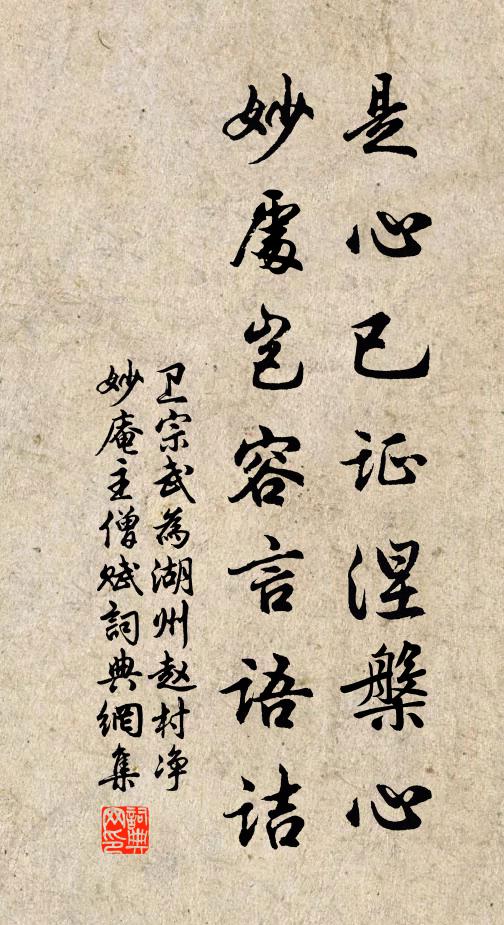 是心已证涅槃心
妙處岂容言语诘
卫宗武為湖州赵村净
妙庵主僧赋詞典網集
詞典
网印